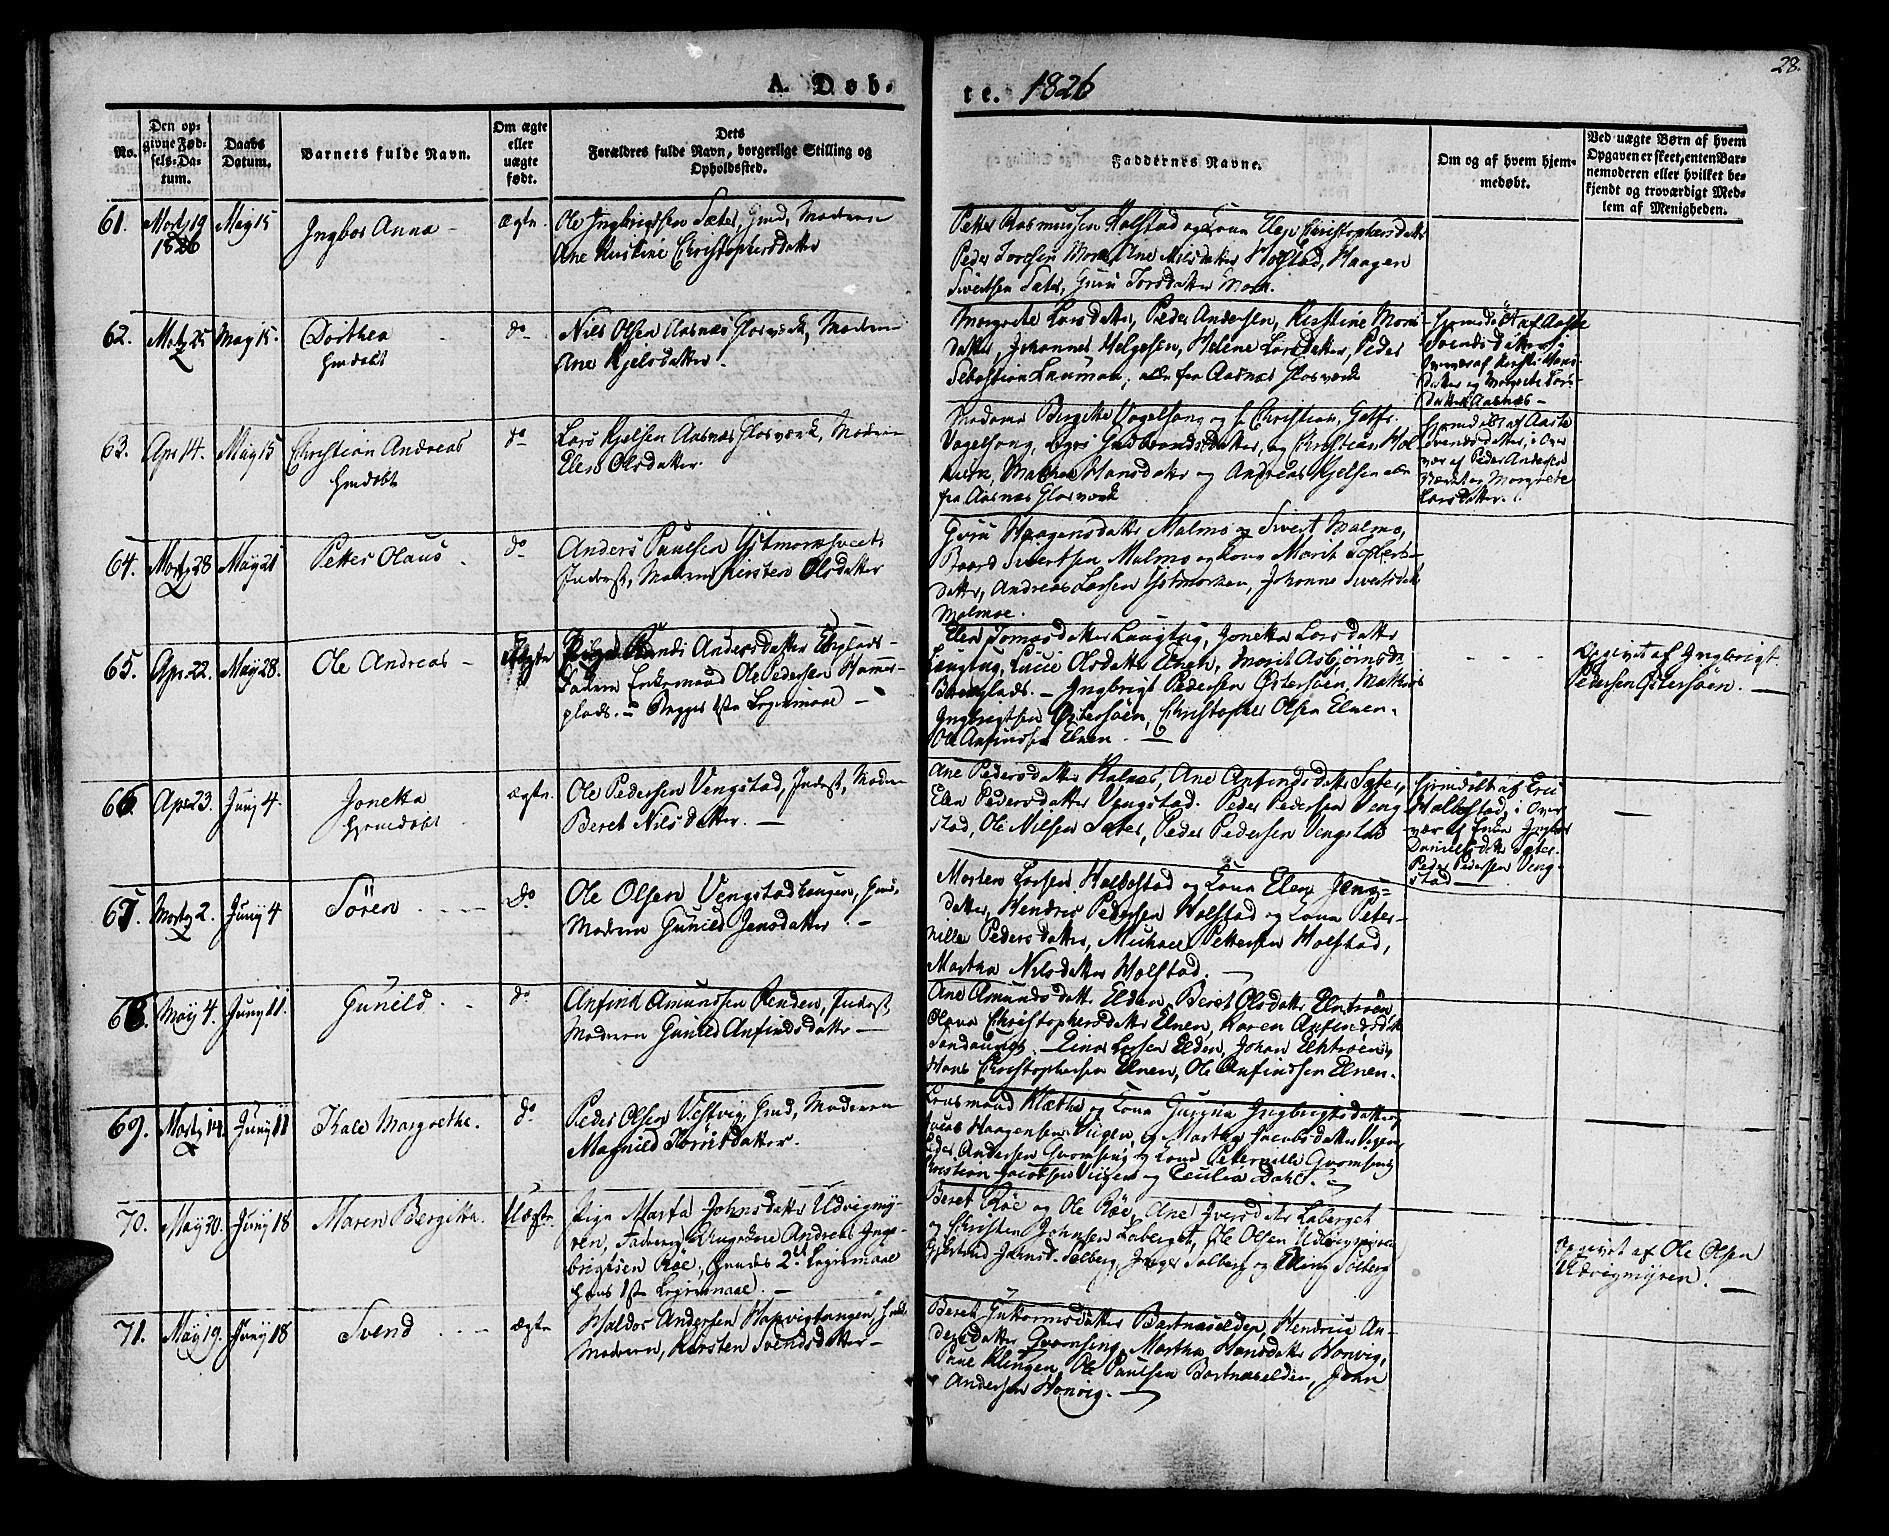 28.
A. Døb-
te. 1826
No.
Den op-
givne Fød-
sels-Da-
tum.
Daabs
Datum.
Barnets fulde Navn.
Om ægte
eller
uægte
født.
Dets
Forældres fulde Navn, borgerlige Stilling og
Opholdssted.
Faddernes Navne.
Om og af hvem hjem-
medøbt.
Ved uægte Børn af hvem
Opgaven er skeet, enten Bar-
nemoderen eller hvilket be-
kjendt og troværdigt Med-
lem af Menigheden.
61. Martz 19 May 15 Ingbor Anna - ægte Ole Ingbrigtsen Sæter, Gmd, Moderen
1826 Ane Kirstine Christophersdatter
Petter Rasmussen Holstad og Kona Elen Christophersdatter
Peder Toresen Moen, Ane Nilsdatter Holstad, Haagen
Sivertsen Sæter, Guru Torsdatter Moen.
62. Martz 25 May 15. Dorthea do Nils Olsen Aasnæs Glasværk, Moderen
hmdøbt Ane Kjelsdatter.
Margrete Larsdatter, Peder Andersen, Kirstine Mons-
datter, Johannes Helgesen, Helene Larsdatter, Peder
Sebastian Lauman, alle fra Aasnæs Glasværk
Hjemdøbt af Aaste
Svendsdatter i
Overvær af Kirsti Hans-
datter og Margrete Lars-
datter Aasnæs -
63. Apr 14. May 15 Christian Andreas do Lars Kjelsen Aasnæs Glasværk, Moderen
hmdøbt Elen Olsdatter.
Madame Bergitte Vogelsang og Hr Christian, Gotfr.
Vogelsang, Gudbrandsdatter, og Christian Hol
Mathea Hansdatter og Andreas Kjelsen alle
fra Aasnæs Glasværk
Hjemdøbt af Aaste
Svendsdatter, i Over
vær af Peder Andersen
Margrete
Larsdatter.
64. Martz 28 May 21 Petter Olaus - do Anders Paulsen Ystmarksveet
Inderst, Moderen Kirsten Olsdatter
Guru Haagensdatter Malmo og Sivert Malmo,
Baard Sivertsen Malmo og Kona Marit Tollers-
datter, Andreas Larsen Ystmarken, Johanna Sivertsdatter
Malmoe.
65. Apr. 22. May 28. Ole Andreas - Uægte Pige Randi Andersdatter Bhglads-
Faderen Enkemand Ole Pedersen Hammer-
plads. - Begges 1ste Leiermaal -
Elen Tomasdatter Langtug, Jonetta Larsdatter
Langtug, Lucie Olsdatter Elnen, Marit Asbjørnsd
Ingbrigt Pedersen Østersøen, Mathias
Ingbrigtsen Østersøen, Christopher Olsen Elnen.
Ole Anfindsen Elnen. -
Opgivet af Ingbrigt
Pedersen Østersøen. -
66. Apr. 23. Juny 4. Jonetta ægte. Ole Pedersen Vengstad, Inderst, Moderen
Hjemdøbt Beret Nilsdatter. -
Ane Pedersdatter Kalnæs, Ane Anfindsdatter Sæter,
Elen Pedersdatter Vengstad. Peder Pedersen Veng
stad, Ole Nilsen Sæter, Peder Pedersen Vengstad
Hjemdøbt af Eric
Halbostad, i Over
vær af Enken Ingbor
Danielsdatter Sæter.
Peder Pedersen Veng-
stad -
67. Martz 2. Juny 4 Sören do Ole Olsen Vengstadhaugen, Gmd,
Moderen Gunild Jensdatter. -
Morten Larsen Halbostad og Kona Elen Jens-
datter, Hendric Pedersen Holstad og Kona Peter-
nille Pedersdatter, Michael Pettersen Holstad,
Martha Nilsdatter Holstad. -
68. May 4. Juny 11. Gunild - do Anfind Amundsen Renden, Inderst
Moderen Gunild Anfindsdatter -
Ane Amundsdatter Elden, Beret Olsdatter Elntrøen,
Olava Christophersdatter Elnen, Karen Anfindsdatter
Einar Larsen Elden, Johan Elntrøen,
Hans Christophersen Elnen, Ole Anfindsen Elnen.
69. Martz 14. Juny 11 Kale Margrethe. do Peder Olsen Vestvig, Gmd, Moderen
Magnild Torrisdatter.
Lensmand Klæthe og Kona Jurina Ingbrigtsdatter
Haagensen Viigen, og Martha Jacobsdatter Vigen
Peder Andersen Gvamsing og Kona Peternille Gvamsing
Christian Jacobsen Viigen og Cecilia Dahl. -
70. May 30. Juny 18 Maren Bergitta. Uægte Pige Marta Johnsdatter Udvigmÿ-
ren, Faderen Ungekarl Andreas Inge-
brigtsen Røe, hendes 2det Leiermaal
hans 1ste Leiermaal -
Beret Røe og Ole Røe, Ane Iversdatter Laberget
og Christen Johnsen Laberget, Ole Olsen Udvigmyren
Solberg, Inger Solberg og Elling Solberg
Opgivet af Ole Olsen
Udvigmÿren. -
71. May 19. Juny 18 Svend - ægte Haldor Andersen Hopvigtangen, Gmd
Moderen, Kirsten Svendsdatter -
Beret Guttormsdatter Bartnæselden, Hendrice An-
dersdatter Qvamsing, Martha Hansdatter Honvig,
Paul Klingen, Ole Paulsen Bartnæselden, John
Andersen Honvig. -